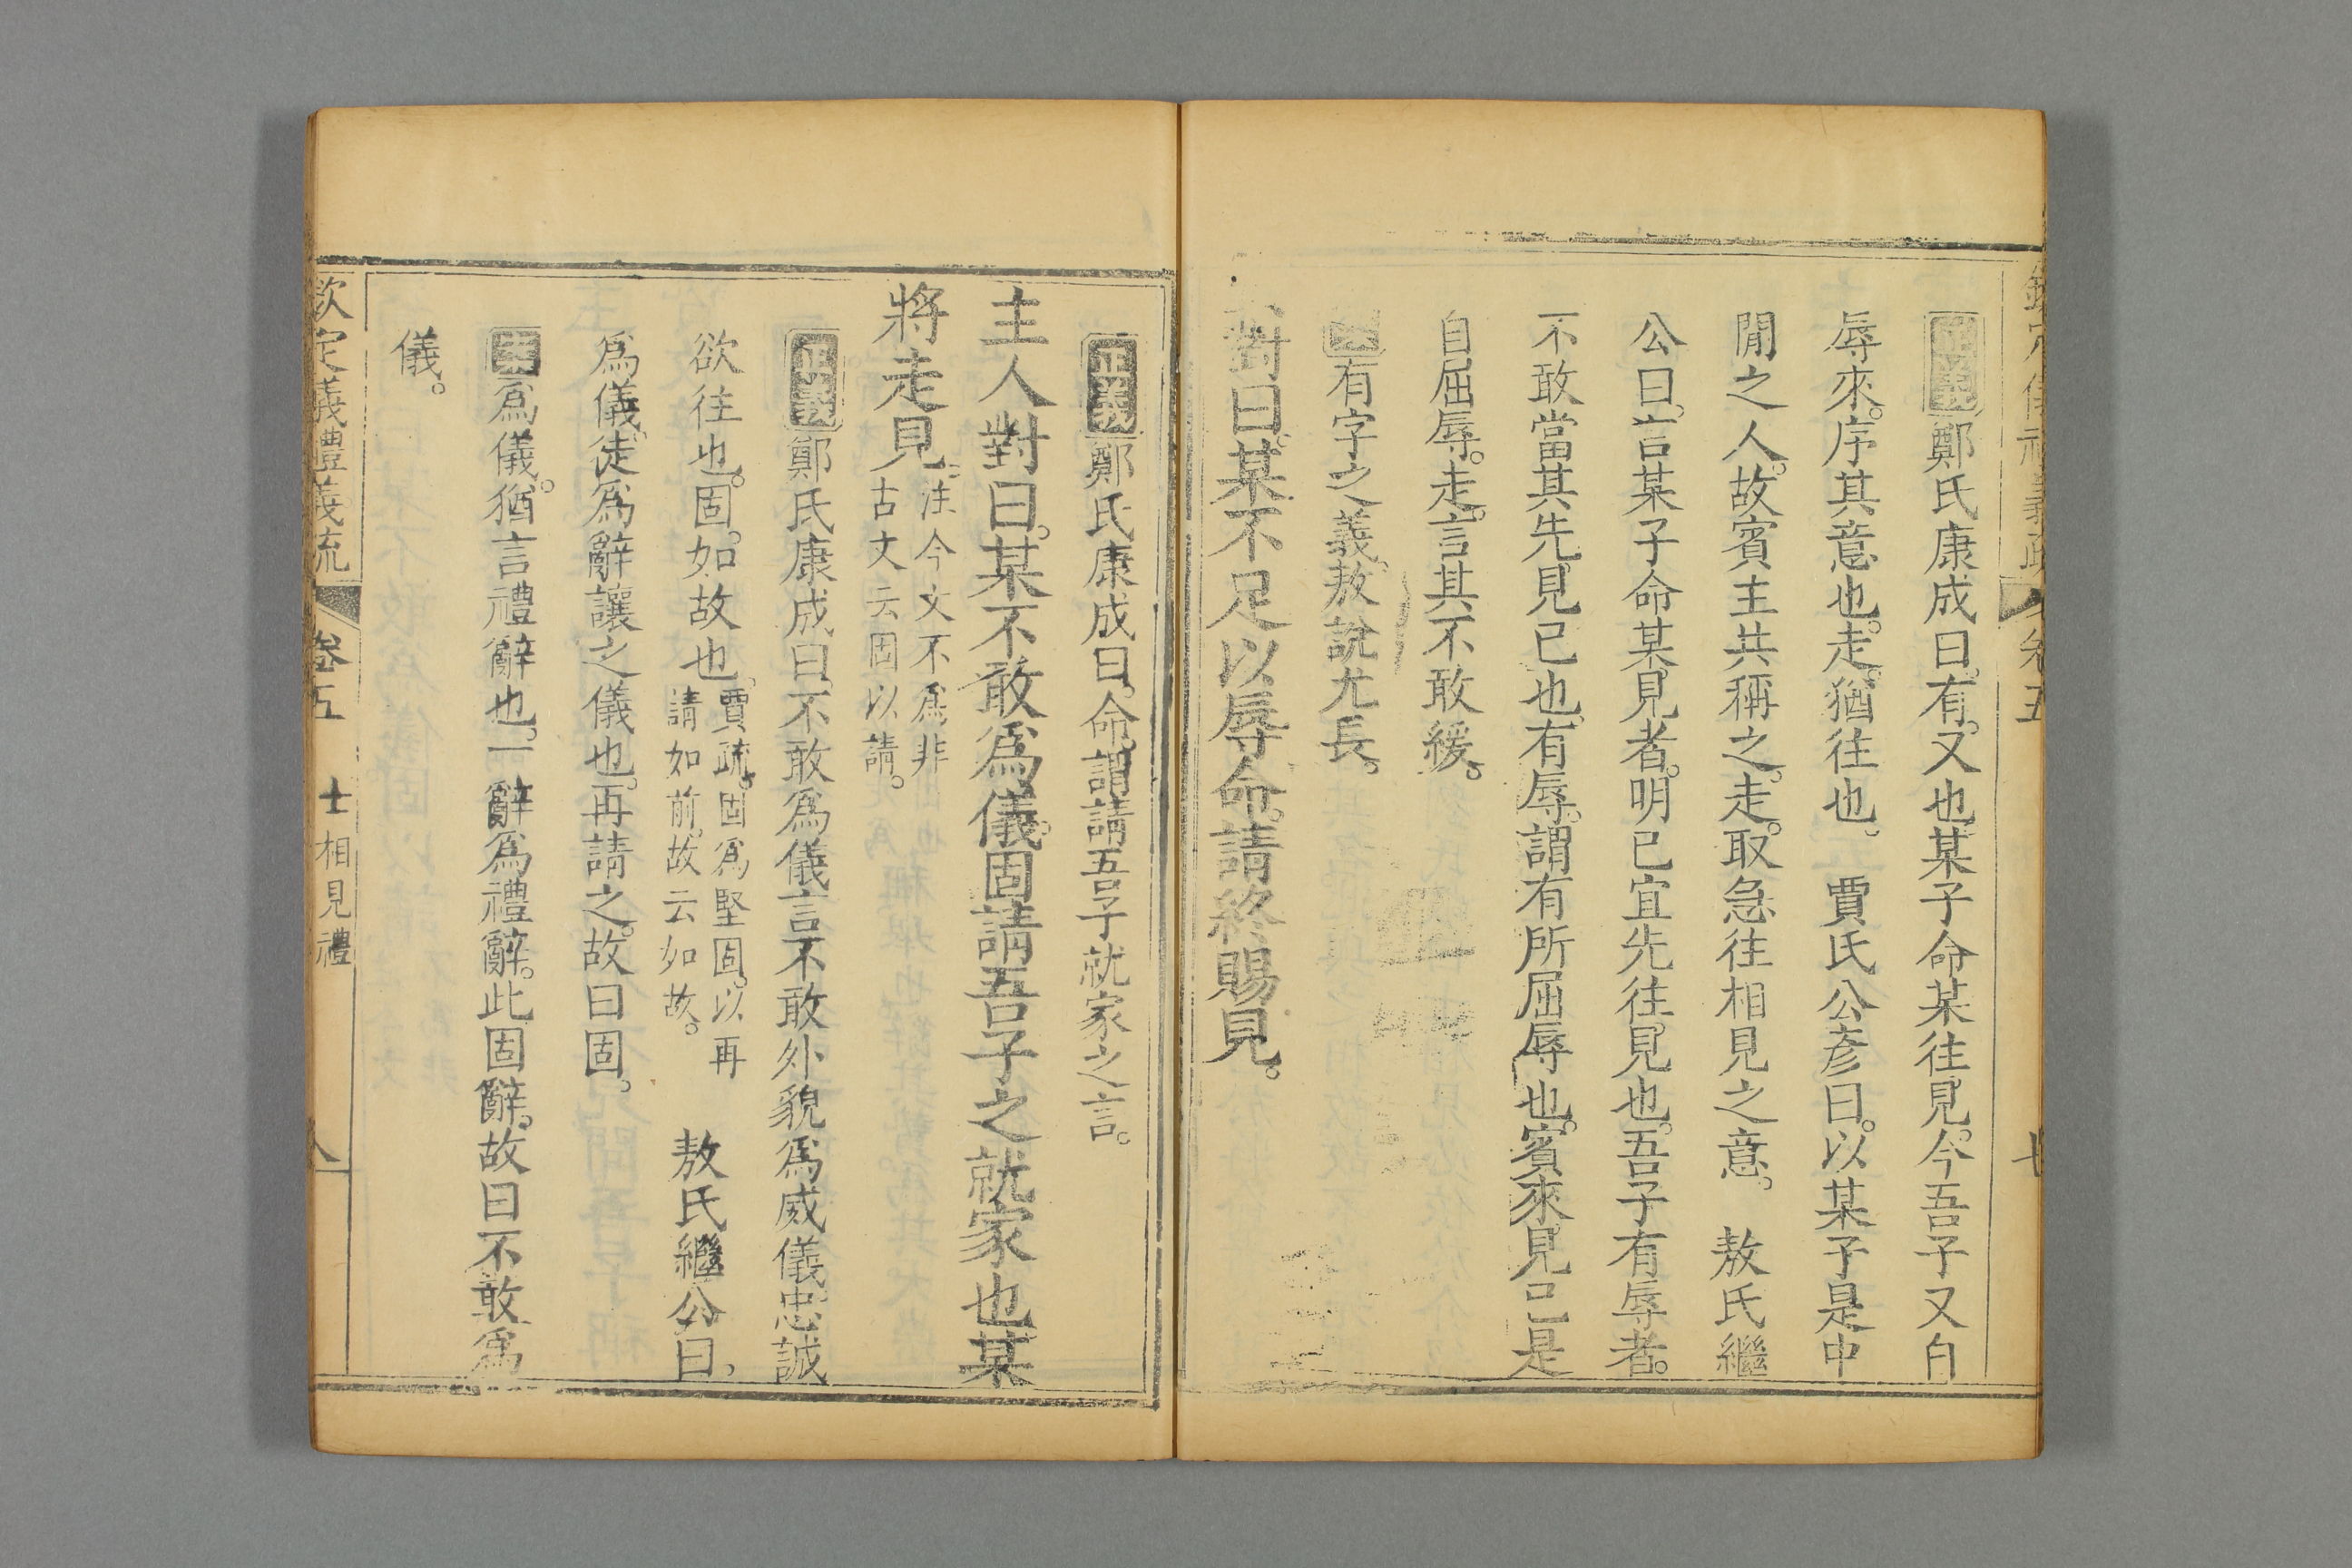 正義鄭氏康成曰。有。又也。某子命某往見。今吾子又自
辱來。序其意也。走。猶往也。 賈氏公彥曰。以某子是中
閒之人。故賓主共稱之。走。取急往相見之意。 敖氏繼
公曰。言某子命某見者。明已宜先往見也。吾子有辱者。
不敢當其先見已也。有辱。謂有所屈辱也。賓來見已是
自屈辱。走。言其不敢緩。
有字之義。敖說尤長。
對曰。某不足以辱命。請終賜見。
正義鄭氏康成曰。命。謂請吾子就家之言。
主人對曰。某不敢爲儀。固請吾子之就家也。某
將走見。注今文不爲非古文云固以請。
正義鄭氏康成曰。不敢爲儀。言不敢外貌爲威儀。忠誠
欲往也。固。如故也。賈疏。固爲堅固。以再請如前。故云如故。 敖氏繼公曰。
爲儀。徒爲辭讓之儀也。再請之。故曰固。
爲儀。猶言禮辭也。一辭爲禮辭。此固辭。故曰不敢爲
儀。
欽定義禮義疏 卷五 士相見禮 八